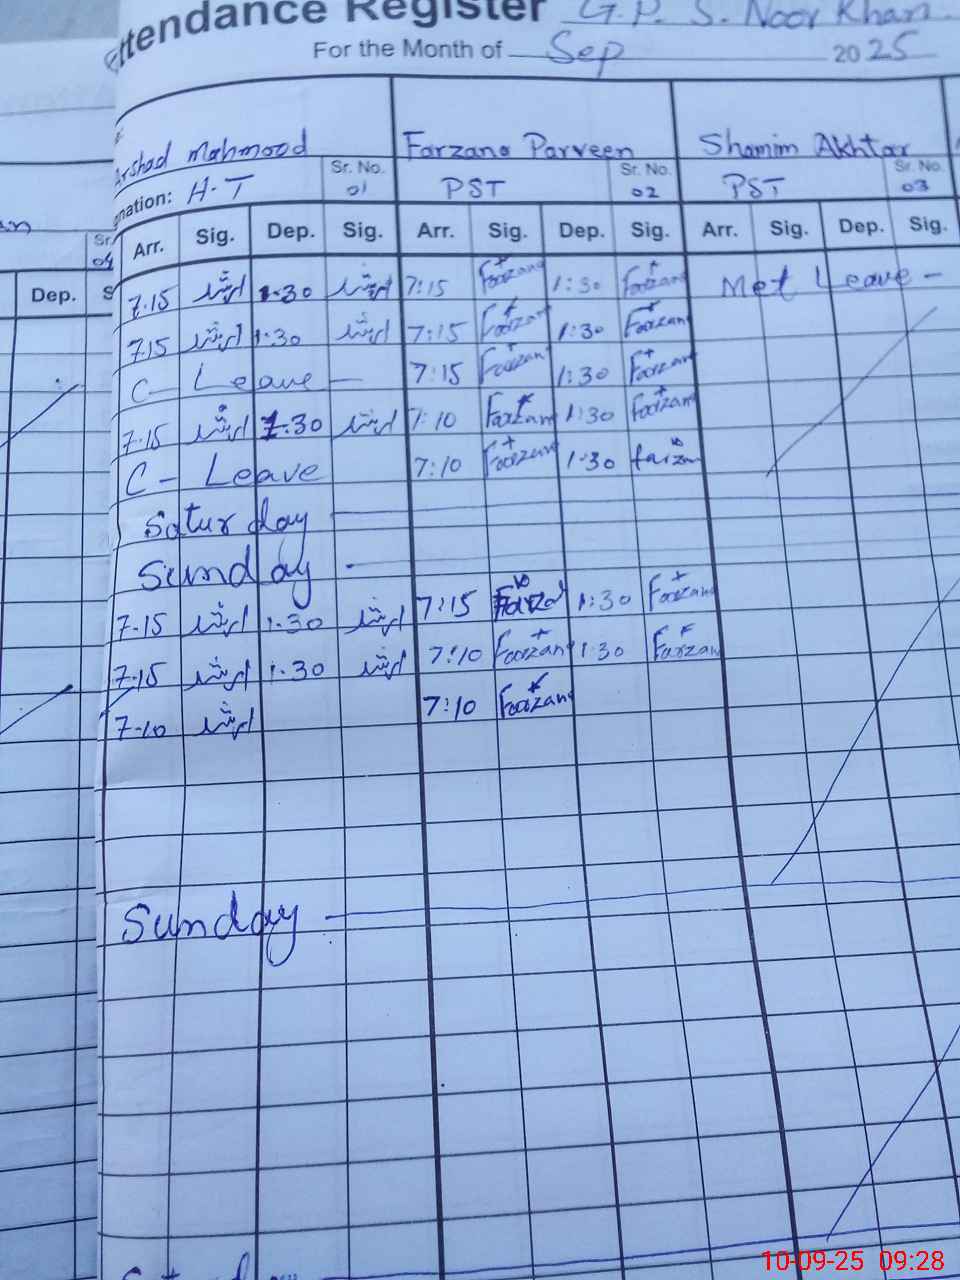 Attendance Register G.P.S. Noor Khan
For the Month of Sep 2025
Arshad Mahmood Farzana Parveen Shamim Akhtar
Sr. No. Sr. No. Sr. No.
H.T 01 PST 02 PST 03
Arr. Sig. Dep. Sig. Arr. Sig. Dep. Sig. Arr. Sig. Dep. Sig.
04
Dep.
7.15 1.30 7:15 Farzana 1:30 Farzana Met Leave -
7.15 1.30 7:15 Farzana 1:30 Farzana
C- Leave - 7:15 Farzana 1:30 Farzana
7.15 1.30 7:10 Farzana 1:30 Farzana
C- Leave 7:10 Farzana 1:30 Farzana
Saturday
Sunday -
7.15 1.30 7:15 Farzana 1:30 Farzana
7.15 1.30 7:10 Farzana 1:30 Farzana
7.10 7:10 Farzana
Sunday
10-09-25 09:28